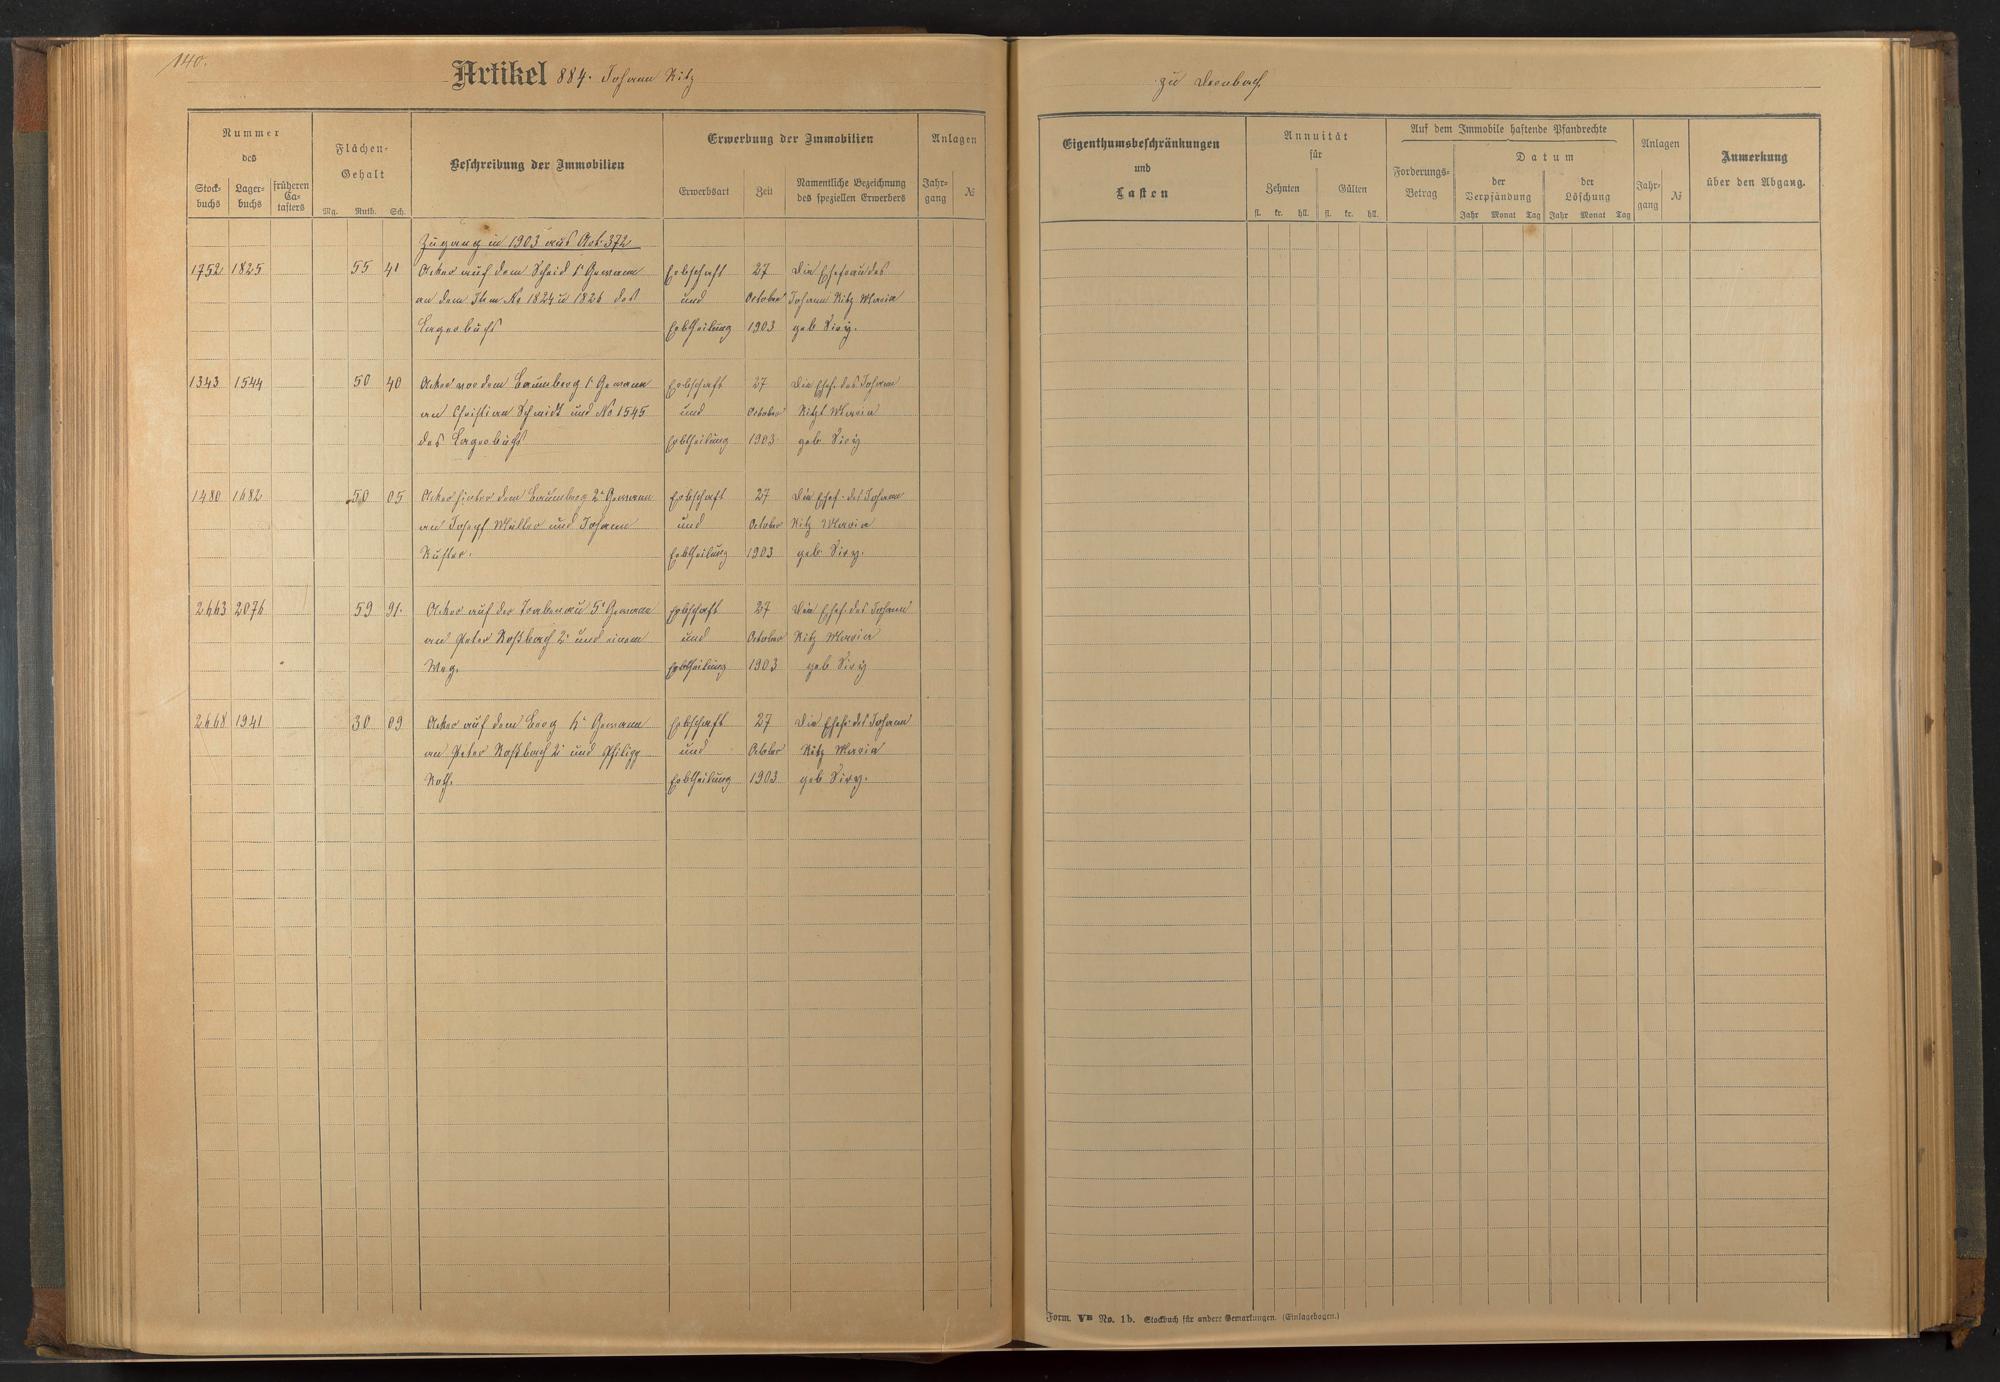 140.
Artikel 884. Johann Kitz
Nummer des
Stockbuchs
Lagerbuchs
früheren Catasters
Flächen-Gehalt
Mg. Ruth. Sch.
Beschreibung der Immobilien
Erwerbung der Immobilien
Erwerbsart
Zeit
Namentliche Bezeichnung
des speziellen Erwerbers
Anlagen
Jahrgang №
Zugang in 1903 aus Art. 372
1752 1825 55 41 Acker auf dem Scheid 1r Gewann Erbschaft 27 Die Ehefrau des
an dem Item No 1824 u 1826 des und October Johann Kitz Maria
Lagerbuchs Erbtheilung 1903 geb.
1343 1544 50 40 Acker vor dem Baumberg 1r Gewann Erbschaft 27 Die Ehef. des Johann
an Christian Schmidt und No 1545 und October Kitz Maria
des Lagerbuchs Erbtheilung 1903 geb
1480 1682 50 05 Acker hinter dem Baumberg 2r Gewann Erbschaft 27 Die Ehef. des Johann
an Josef Müller und Johann und October Kitz Maria
Erbtheilung 1903 geb.
2663 2076 59 91 Acker auf der 5r Gewann Erbschaft 27 Die Ehef. des Johann
an Peter Roßbach 2r und einem und October Kitz Maria
Weg. Erbtheilung 1903 geb
2668 1941 30 09 Acker auf dem Berg Gewann Erbschaft 27 Die Ehef. des Johann
an Peter Roßbach 2r und Philipp und October Kitz Maria
Roth. Erbtheilung 1903 geb
zu
Eigenthumsbeschränkungen
und
Lasten
Annuität
für
Zehnten Gülten
fl. kr. hll. fl. kr. hll.
Auf dem Immobile haftende Pfandrechte
Forderungs-Betrag
Datum
der Verpfändung
der Löschung
Jahr Monat Tag Jahr Monat Tag
Anlagen
Jahrgang №
Anmerkung
über den Abgang.
Form. VB No. 1b. Stockbuch für andere Gemarkungen. (Einlagebogen.)